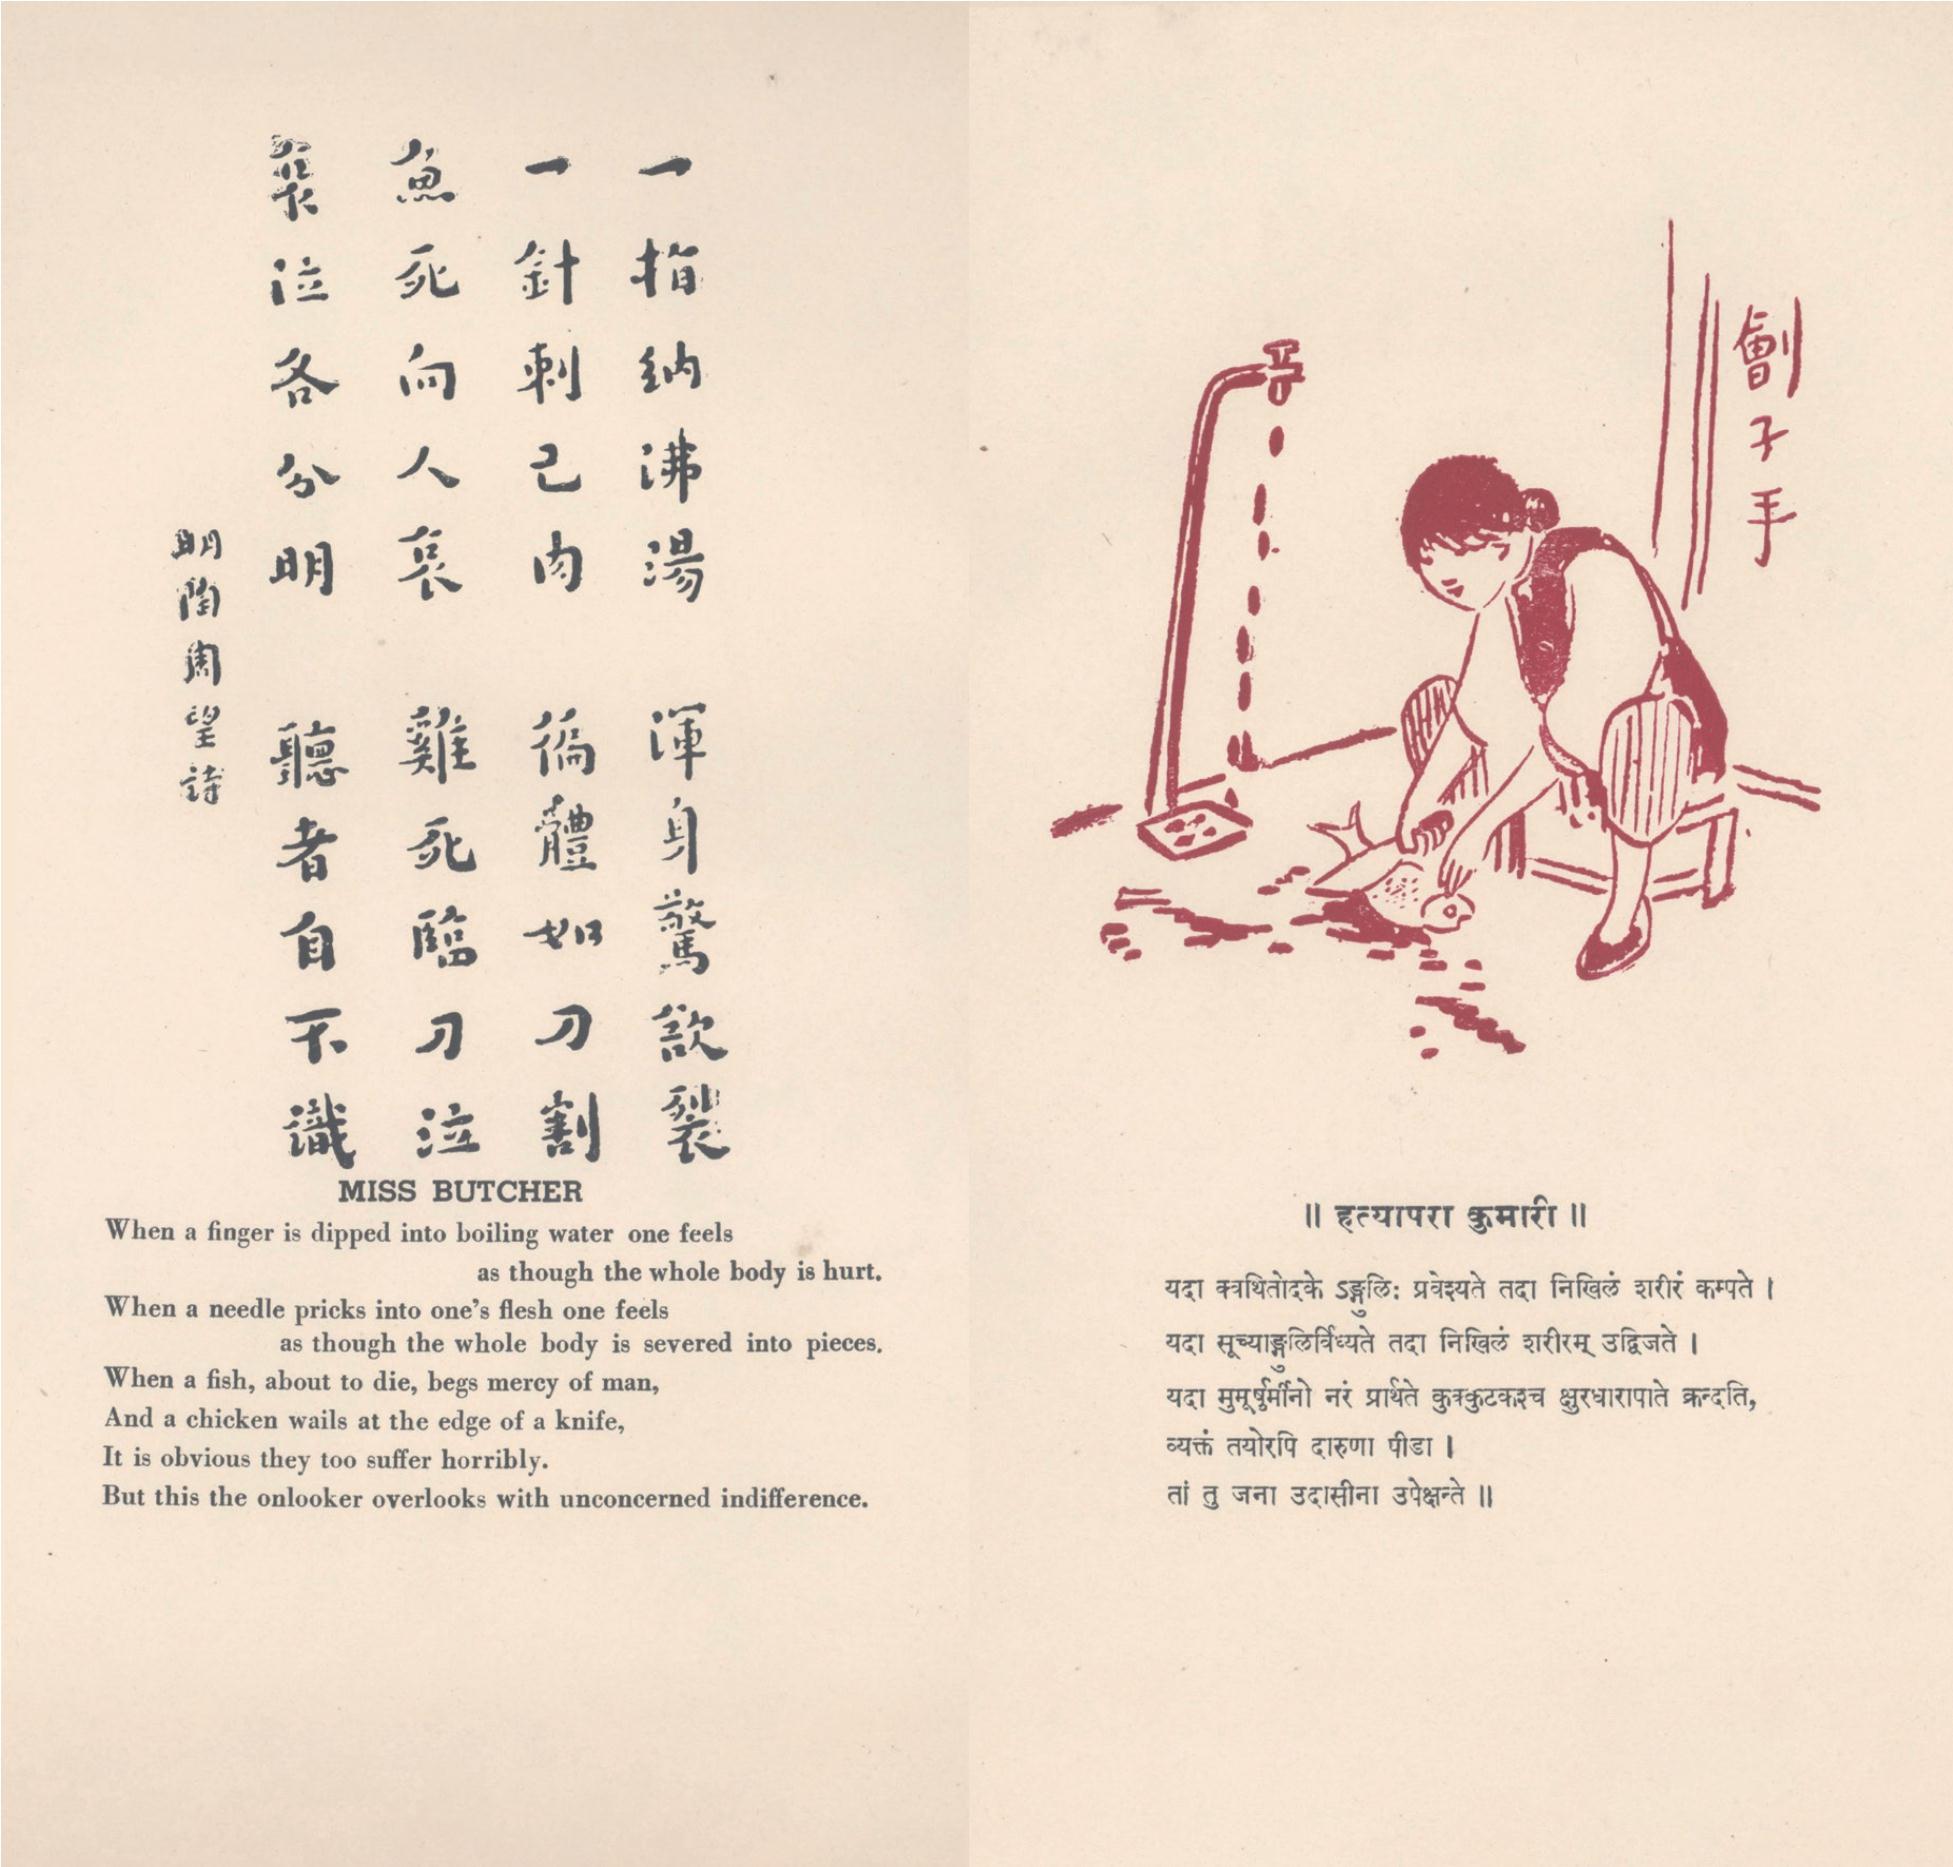 一指納沸湯 渾身驚欲裂
一針刺己肉 徧體如刀割
魚死向人哀 雞死臨刀泣
哀泣各分明 聽者自不識
明陶周望詩
MISS BUTCHER
When a finger is dipped into boiling water one feels
as though the whole body is hurt.
When a needle pricks into one's flesh one feels
as though the whole body is severed into pieces.
When a fish, about to die, begs mercy of man,
And a chicken wails at the edge of a knife,
It is obvious they too suffer horribly.
But this the onlooker overlooks with unconcerned indifference.
劊子手
॥ हत्यापरा कुमारी ॥
यदा क्वथितोदके ऽङ्गुलिः प्रवेश्यते तदा निखिलं शरीरं कम्पते ।
यदा सूच्याङ्गुलिर्विध्यते तदा निखिलं शरीरम् उद्विजते ।
यदा मुमूर्षुर्मीनो नरं प्रार्थते कुक्कुटकश्च क्षुरधारापाते क्रन्दति,
व्यक्तं तयोरपि दारुणा पीडा ।
तां तु जना उदासीना उपेक्षन्ते ॥